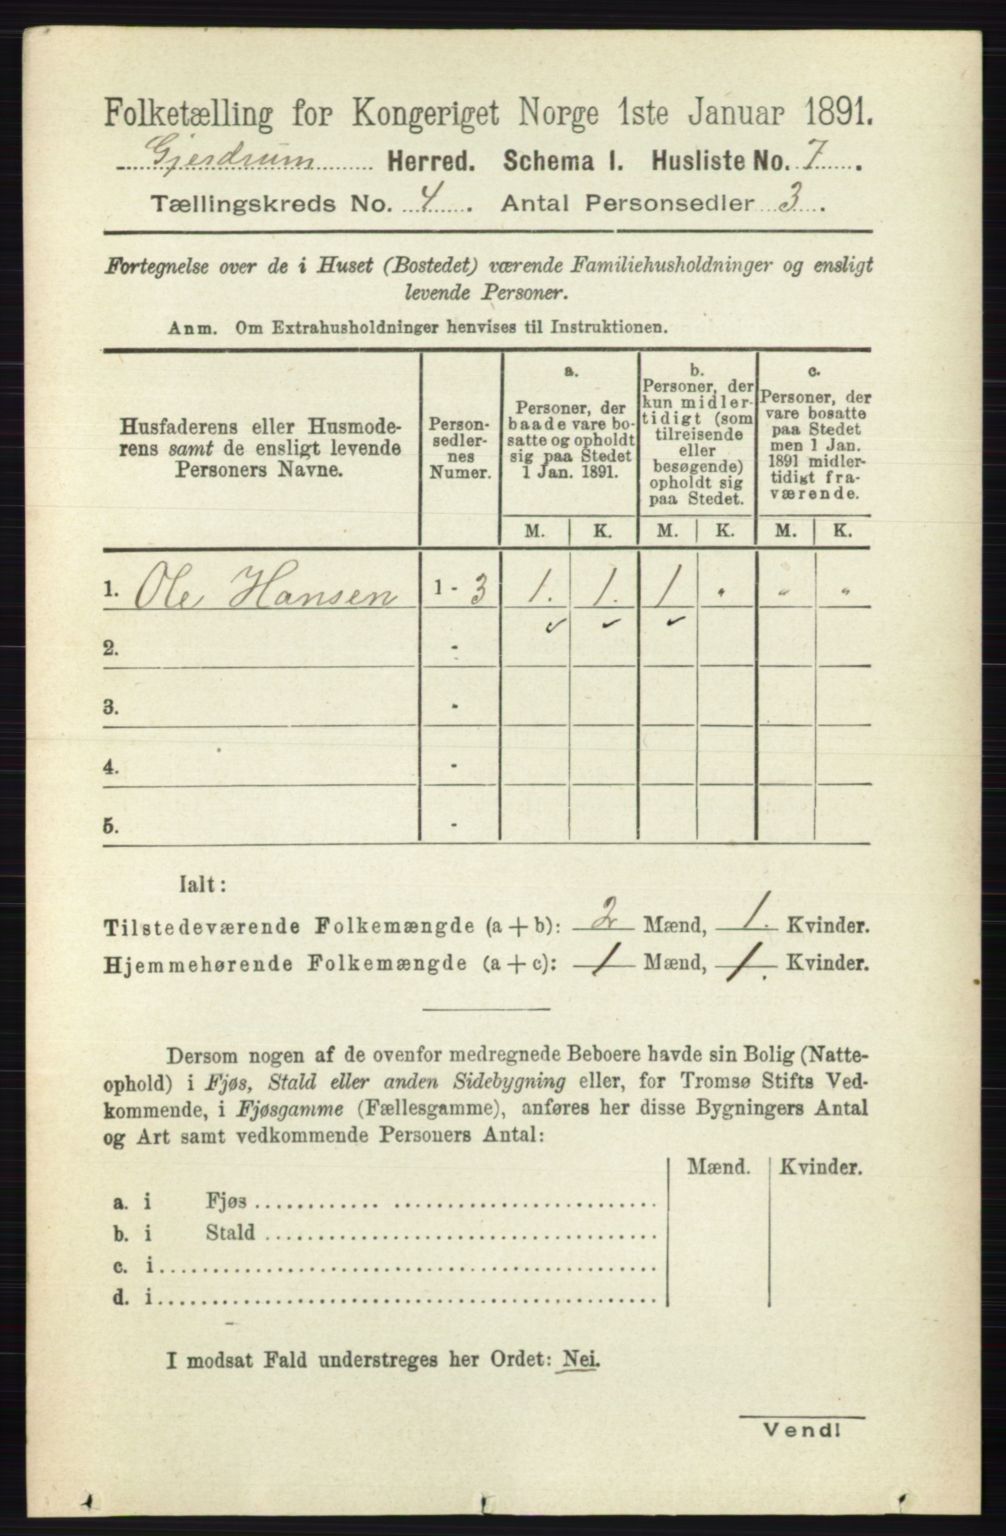 Folketælling for Kongeriget Norge 1ste Januar 1891.
Gjerdrum Herred. Schema I. Husliste No. 7.
Tællingskreds No. 4. Antal Personsedler 3.
Fortegnelse over de i Huset (Bostedet) værende Familiehusholdninger og ensligt
levende Personer.
Anm. Om Extrahusholdninger henvises til Instruktionen.
Husfaderens eller Husmode-
rens samt de ensligt levende
Personers Navne.
Person-
sedler-
nes
Numer.
a.
Personer, der
baade vare bo-
satte og opholdt
sig paa Stedet
1 Jan. 1891.
b.
Personer, der
kun midler-
tidigt (som
tilreisende
eller
besøgende)
opholdt sig
paa Stedet.
c.
Personer, der
vare bosatte
paa Stedet
men 1 Jan.
1891 midler-
tidigt fra-
værende.
M. K. M. K. M. K.
1. Ole Hansen 1 - 3 1. 1. 1 " " "
✓ ✓ ✓
2. -
3. -
4. -
5. -
Ialt:
Tilstedeværende Folkemængde (a + b): 2 Mænd, 1. Kvinder.
Hjemmehørende Folkemængde (a + c): 1 Mænd, 1. Kvinder.
Dersom nogen af de ovenfor medregnede Beboere havde sin Bolig (Natte-
ophold) i Fjøs, Stald eller anden Sidebygning eller, for Tromsø Stifts Ved-
kommende, i Fjøsgamme (Fællesgamme), anføres her disse Bygningers Antal
og Art samt vedkommende Personers Antal:
Mænd. Kvinder.
a. i Fjøs
b. i Stald
c. i
d. i
I modsat Fald understreges her Ordet: Nei.
Vend!